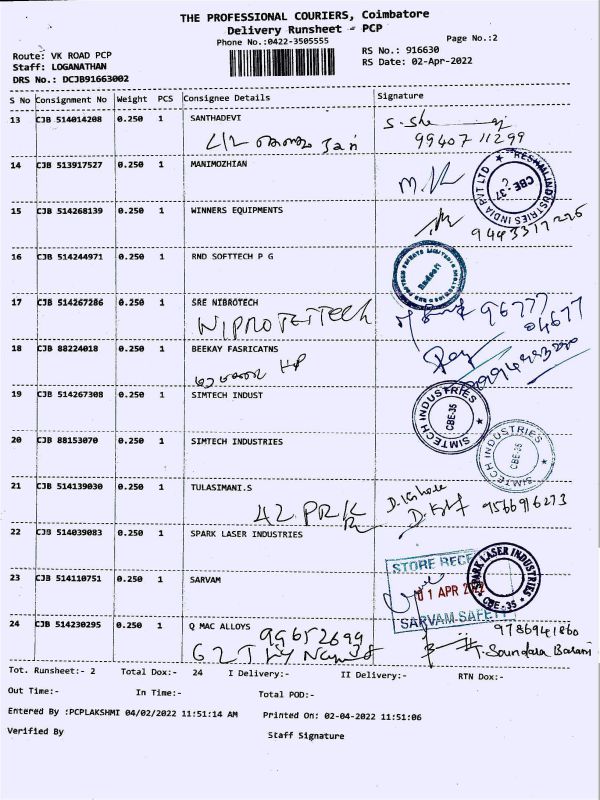 THE PROFESSIONAL COURIERS, Coimbatore
Delivery Runsheet - PCP
Phone No.:0422-3505555
Page No.:2
Route: VK ROAD PCP
RS No.: 916630
Staff: LOGANATHAN
RS Date: 02-Apr-2022
DRS No.: DCJB91663002
S No Consignment No Weight PCS Consignee Details Signature
13 CJB 514014208 0.250 1 SANTHADEVI
99407 11299
14 CJB 513917527 0.250 1 MANIMOZHIAN
RESHMI INDUSTRIES INDIA PVT LTD
CBE-37
15 CJB 514268139 0.250 1 WINNERS EQUIPMENTS
16 CJB 514244971 0.250 1 RND SOFTTECH P G
17 CJB 514267286 0.250 1 SRE NIBROTECH
96777
04677
18 CJB 88224018 0.250 1 BEEKAY FASRICATNS
19 CJB 514267308 0.250 1 SIMTECH INDUST
SIMTECH INDUSTRIES
CBE-35
20 CJB 88153070 0.250 1 SIMTECH INDUSTRIES
SIMTECH INDUSTRIES
CBE-35
21 CJB 514139030 0.250 1 TULASIMANI.S
42 PRK
9566916273
22 CJB 514039083 0.250 1 SPARK LASER INDUSTRIES
SPARK LASER INDUSTRIES
CBE-35
23 CJB 514110751 0.250 1 SARVAM
STORE
01 APR
SARVAM SAFETY
24 CJB 514230295 0.250 1 Q MAC ALLOYS
99652699
9786941860
T. Soundara
Tot. Runsheet:- 2 Total Dox:- 24 I Delivery:- II Delivery:- RTN Dox:-
Out Time:- In Time:- Total POD:-
Entered By :PCPLAKSHMI 04/02/2022 11:51:14 AM Printed On: 02-04-2022 11:51:06
Verified By Staff Signature